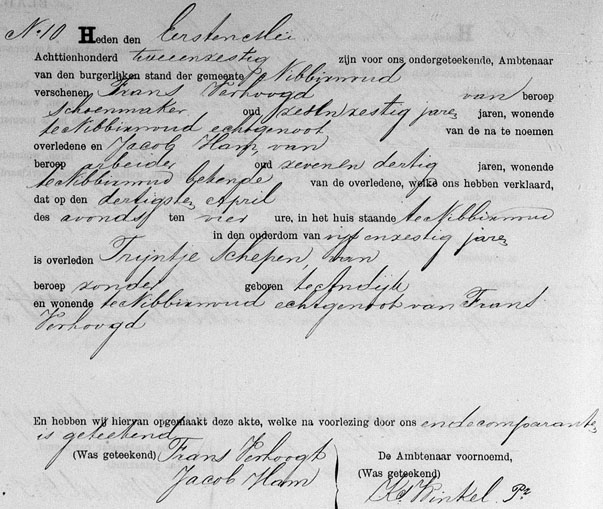 No 10 Heden den Eersten Mei
Achttienhonderd tweeenzestig zijn voor ons ondergeteekende, Ambtenaar
van den burgerlijken stand der gemeente Nibbixwoud
verschenen Frans Verhoogd van beroep
schoenmaker oud zesenzestig jare, jaren, wonende
te Nibbixwoud echtgenoot van de na te noemen
overledene en Jacob Ham, van
beroep arbeider oud zeven en dertig jaren, wonende
te Nibbixwoud bekende van de overledene, welke ons hebben verklaard,
dat op den dertigsten April
des avonds ten vier ure, in het huis staande te Nibbixwoud
in den ouderdom van vijfenzestig jare,
is overleden Trijntje Schepen, van
beroep zonder geboren te Andijk
en wonende te Nibbixwoud echtgenoot van Frans
Verhoogd
En hebben wij hiervan opgemaakt deze akte, welke na voorlezing door ons en de comparante,
is geteekend
(Was geteekend) Frans Verhoogt
Jacob Ham
De Ambtenaar voornoemd,
(Was geteekend)
Winkel Pz